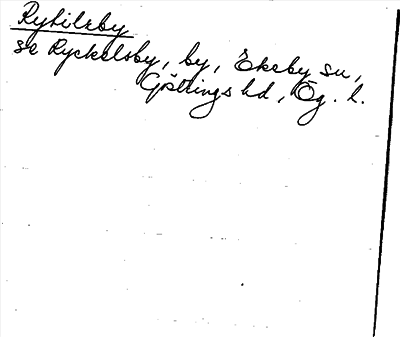 Rykilzby
se Ryckelsby, by, Ekeby sn,
Göstrings hd, Ög. l.